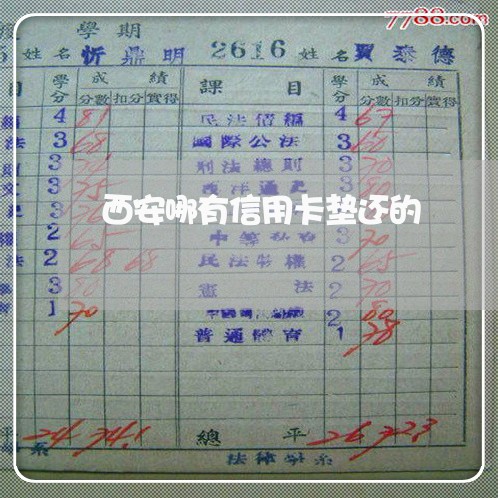 7788.com
學期
5 姓名 忻鼎明 2616 姓名 賈泰德
目 學分 成績 課目 學分 成績
分數 扣分 實得 分數 扣分 實得
4 81 民法債編 4 67
法 3 68 國際公法 3 60
3 刑法總則 3 70
文 3 75 西洋通史 3 80
西安哪有信用卡垫还的
2 65 3 70
法 2 68 68 民法物權 2 65
3 80 憲法 2 70
1 70 2 80
普通體育 1 78
平 24 74.1 總平 26 72.3
系 法律學系